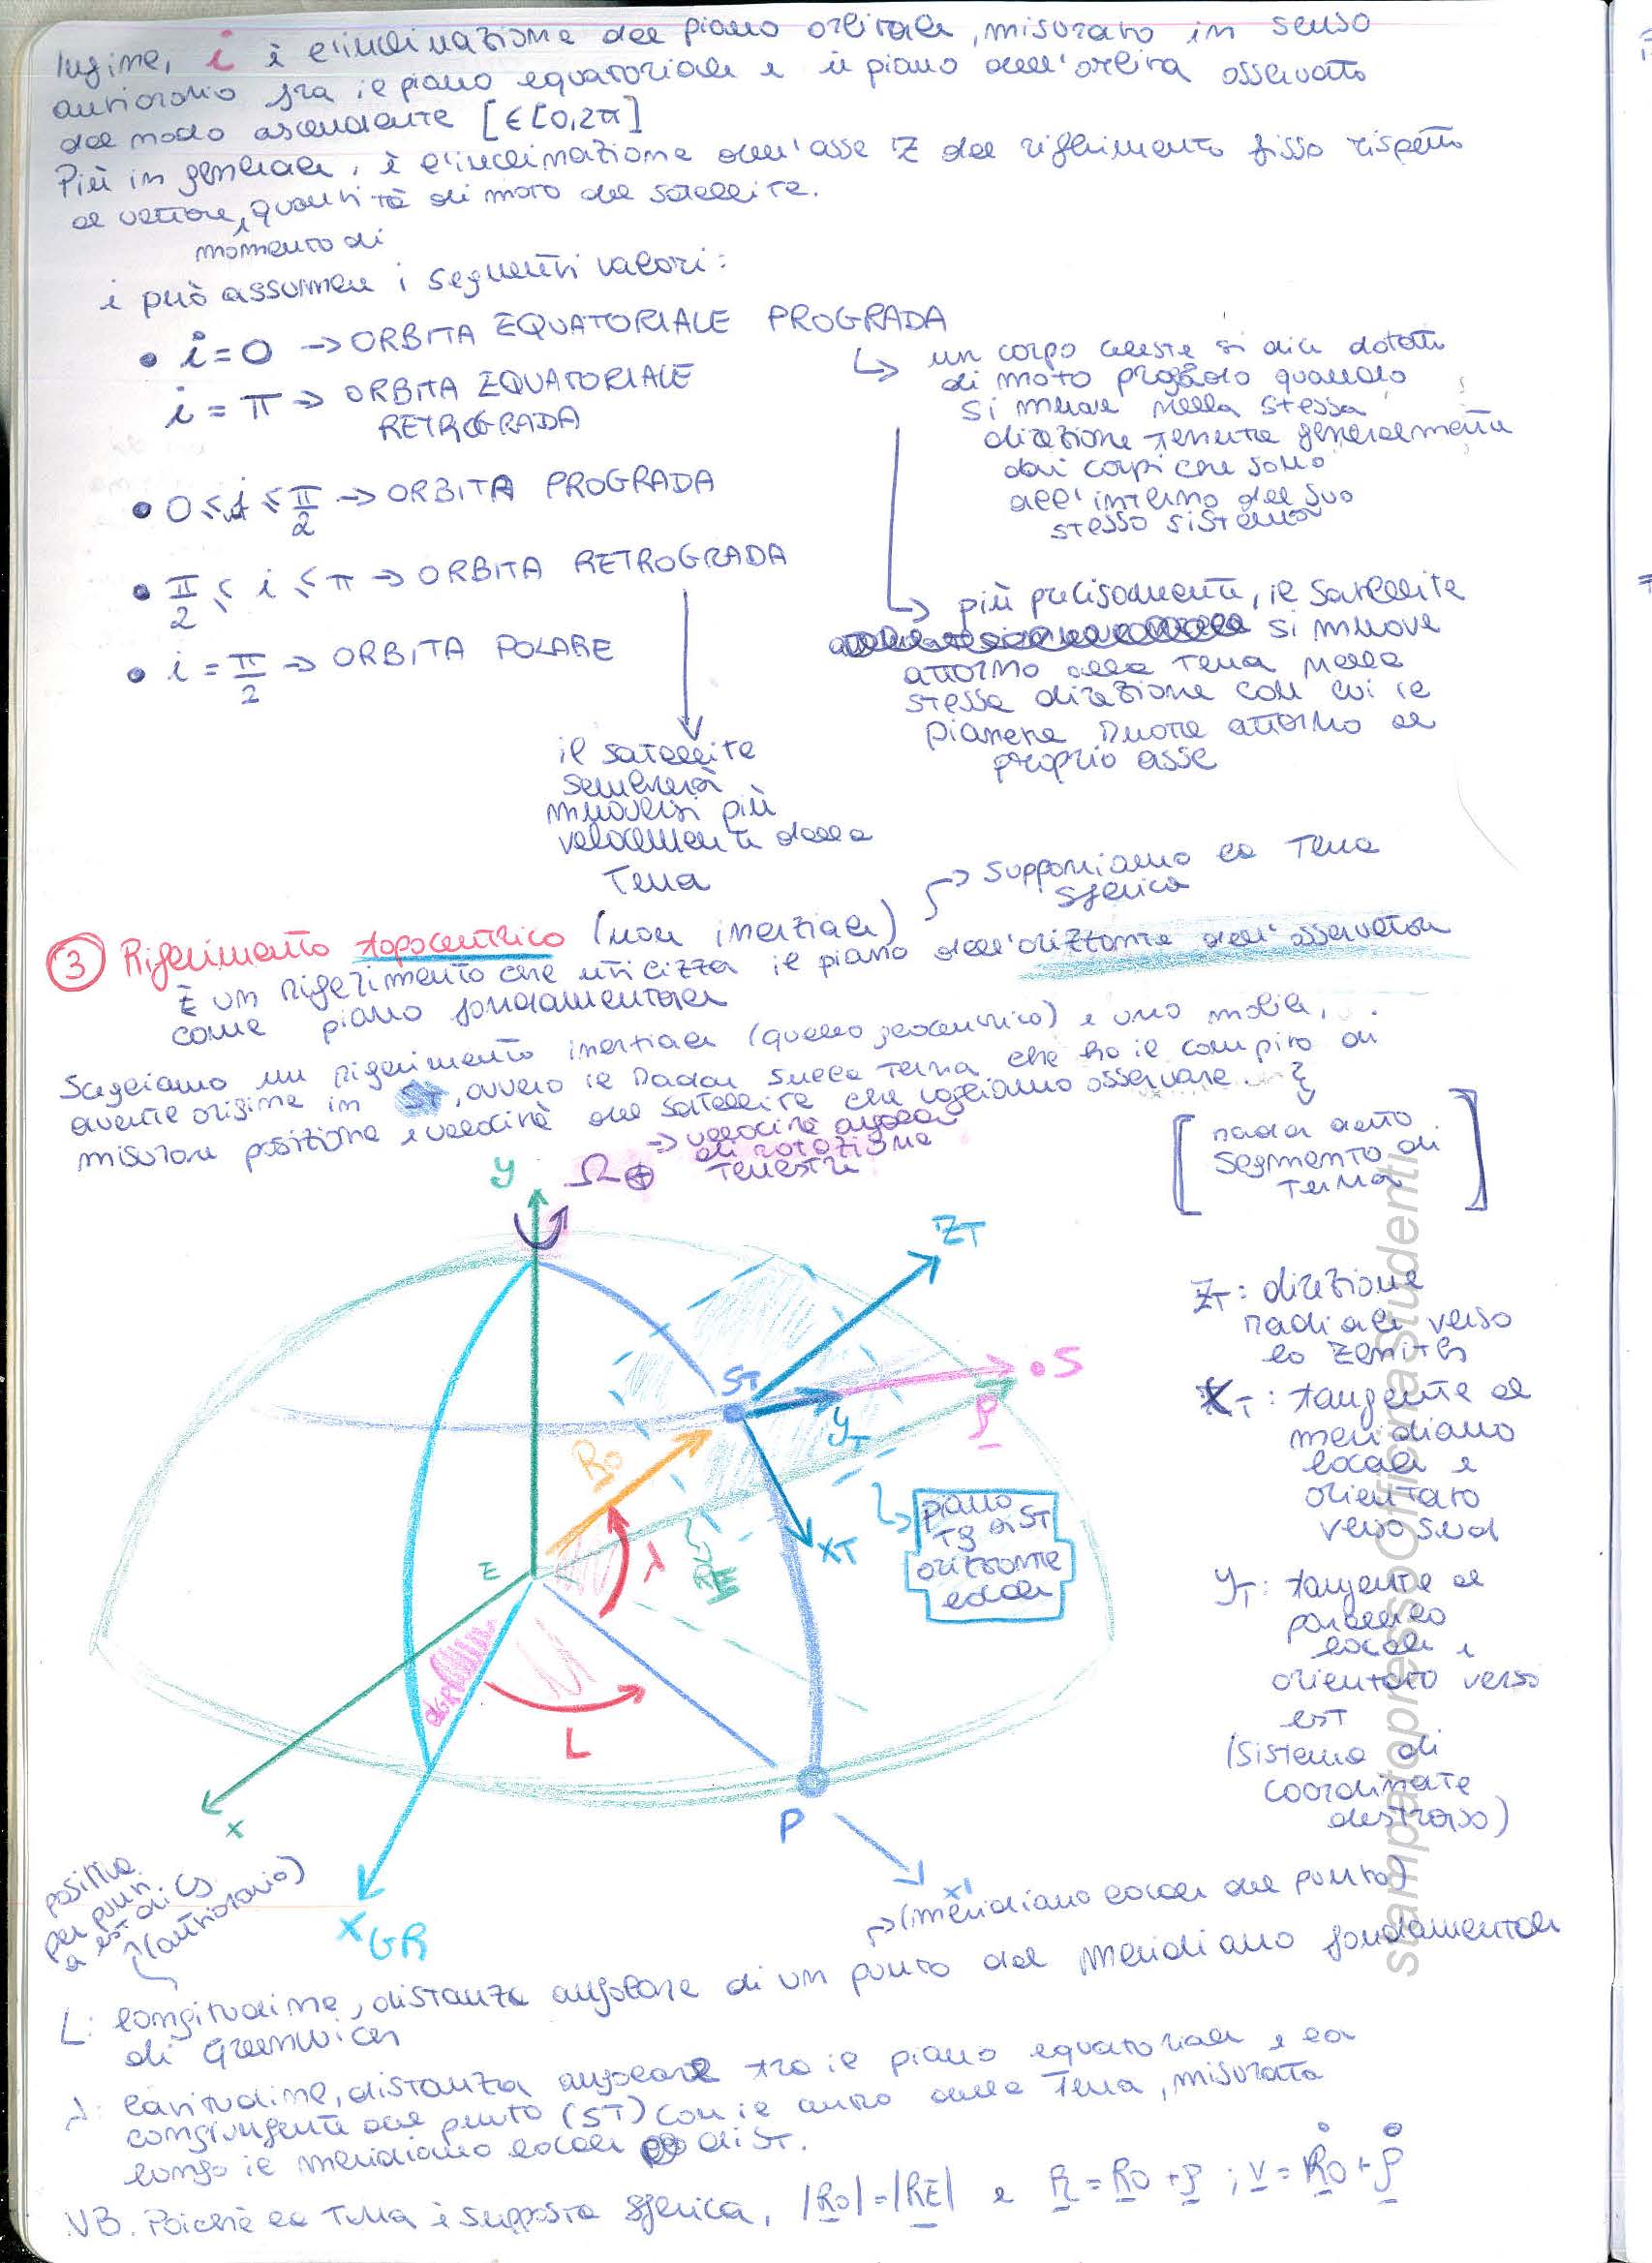 Infine, i è l'inclinazione del piano orbitale, misurato in senso
antiorario fra il piano equatoriale e il piano dell'orbita osservato
dal nodo ascendente [∈[0,2π]
Più in generale, è l'inclinazione dell'asse Z del riferimento fisso rispetto
al vettore, quantità di moto del satellite.
momento di
i può assumere i seguenti valori:
• i=0 → ORBITA EQUATORIALE PROGRADA
i = π → ORBITA EQUATORIALE
RETROGRADA
• 0 ≤ i ≤ π/2 → ORBITA PROGRADA
• π/2 ≤ i ≤ π → ORBITA RETROGRADA
• i = π/2 → ORBITA POLARE
↳ un corpo celeste si dice dotato
di moto progrado quando
si muove nella stessa
direzione tenuta generalmente
dai corpi che sono
all'interno del suo
stesso sistema
↳ più precisamente, il satellite
si muove
attorno alla Terra nella
stessa direzione con cui il
pianeta ruota attorno al
proprio asse
il satellite
sembrerà
muoversi più
velocemente della
Terra
→ Supponiamo la Terra
sferica
③ Riferimento topocentrico (non inerziale)
È un riferimento che utilizza il piano dell'orizzonte dell'osservatore
come piano fondamentale
Scegliamo un riferimento inerziale (quello geocentrico) e uno mobile,
avente origine in ST, ovvero il Radar sulla Terra che ha il compito di
misurare posizione e velocità del satellite che vogliamo osservare.
[radar detto
segmento di
Terra]
Ω⊕ → velocità angolare
di rotazione
terrestre
y
ZT
ST
S
yT
ρ
R0
XT
λ
RE
piano
TG a ST
orizzonte
locale
Z
αGR
L
x
P
XGR
x'
ZT: direzione
radiale verso
lo zenith
XT: tangente al
meridiano
locale e
orientato
verso sud
yT: tangente al
parallelo
locale e
orientato verso
est
(sistema di
coordinate
destrorso)
positiva
per punti
a est di G
(antiorario)
→ (meridiano locale del punto)
L: longitudine, distanza angolare di un punto dal meridiano fondamentale
di Greenwich
λ: latitudine, distanza angolare tra il piano equatoriale e la
congiungente del punto (ST) con il centro della Terra, misurata
lungo il meridiano locale di ST.
NB. Poichè la Terra è supposta sferica, |R0|=|RE| e R = R0 + ρ ; v = Ṙ0 + ρ̇
stampatopressoOfficinaStudenti